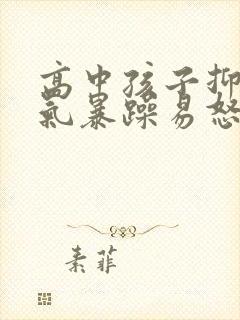 高中孩子抑
氣暴躁易怒
素菲